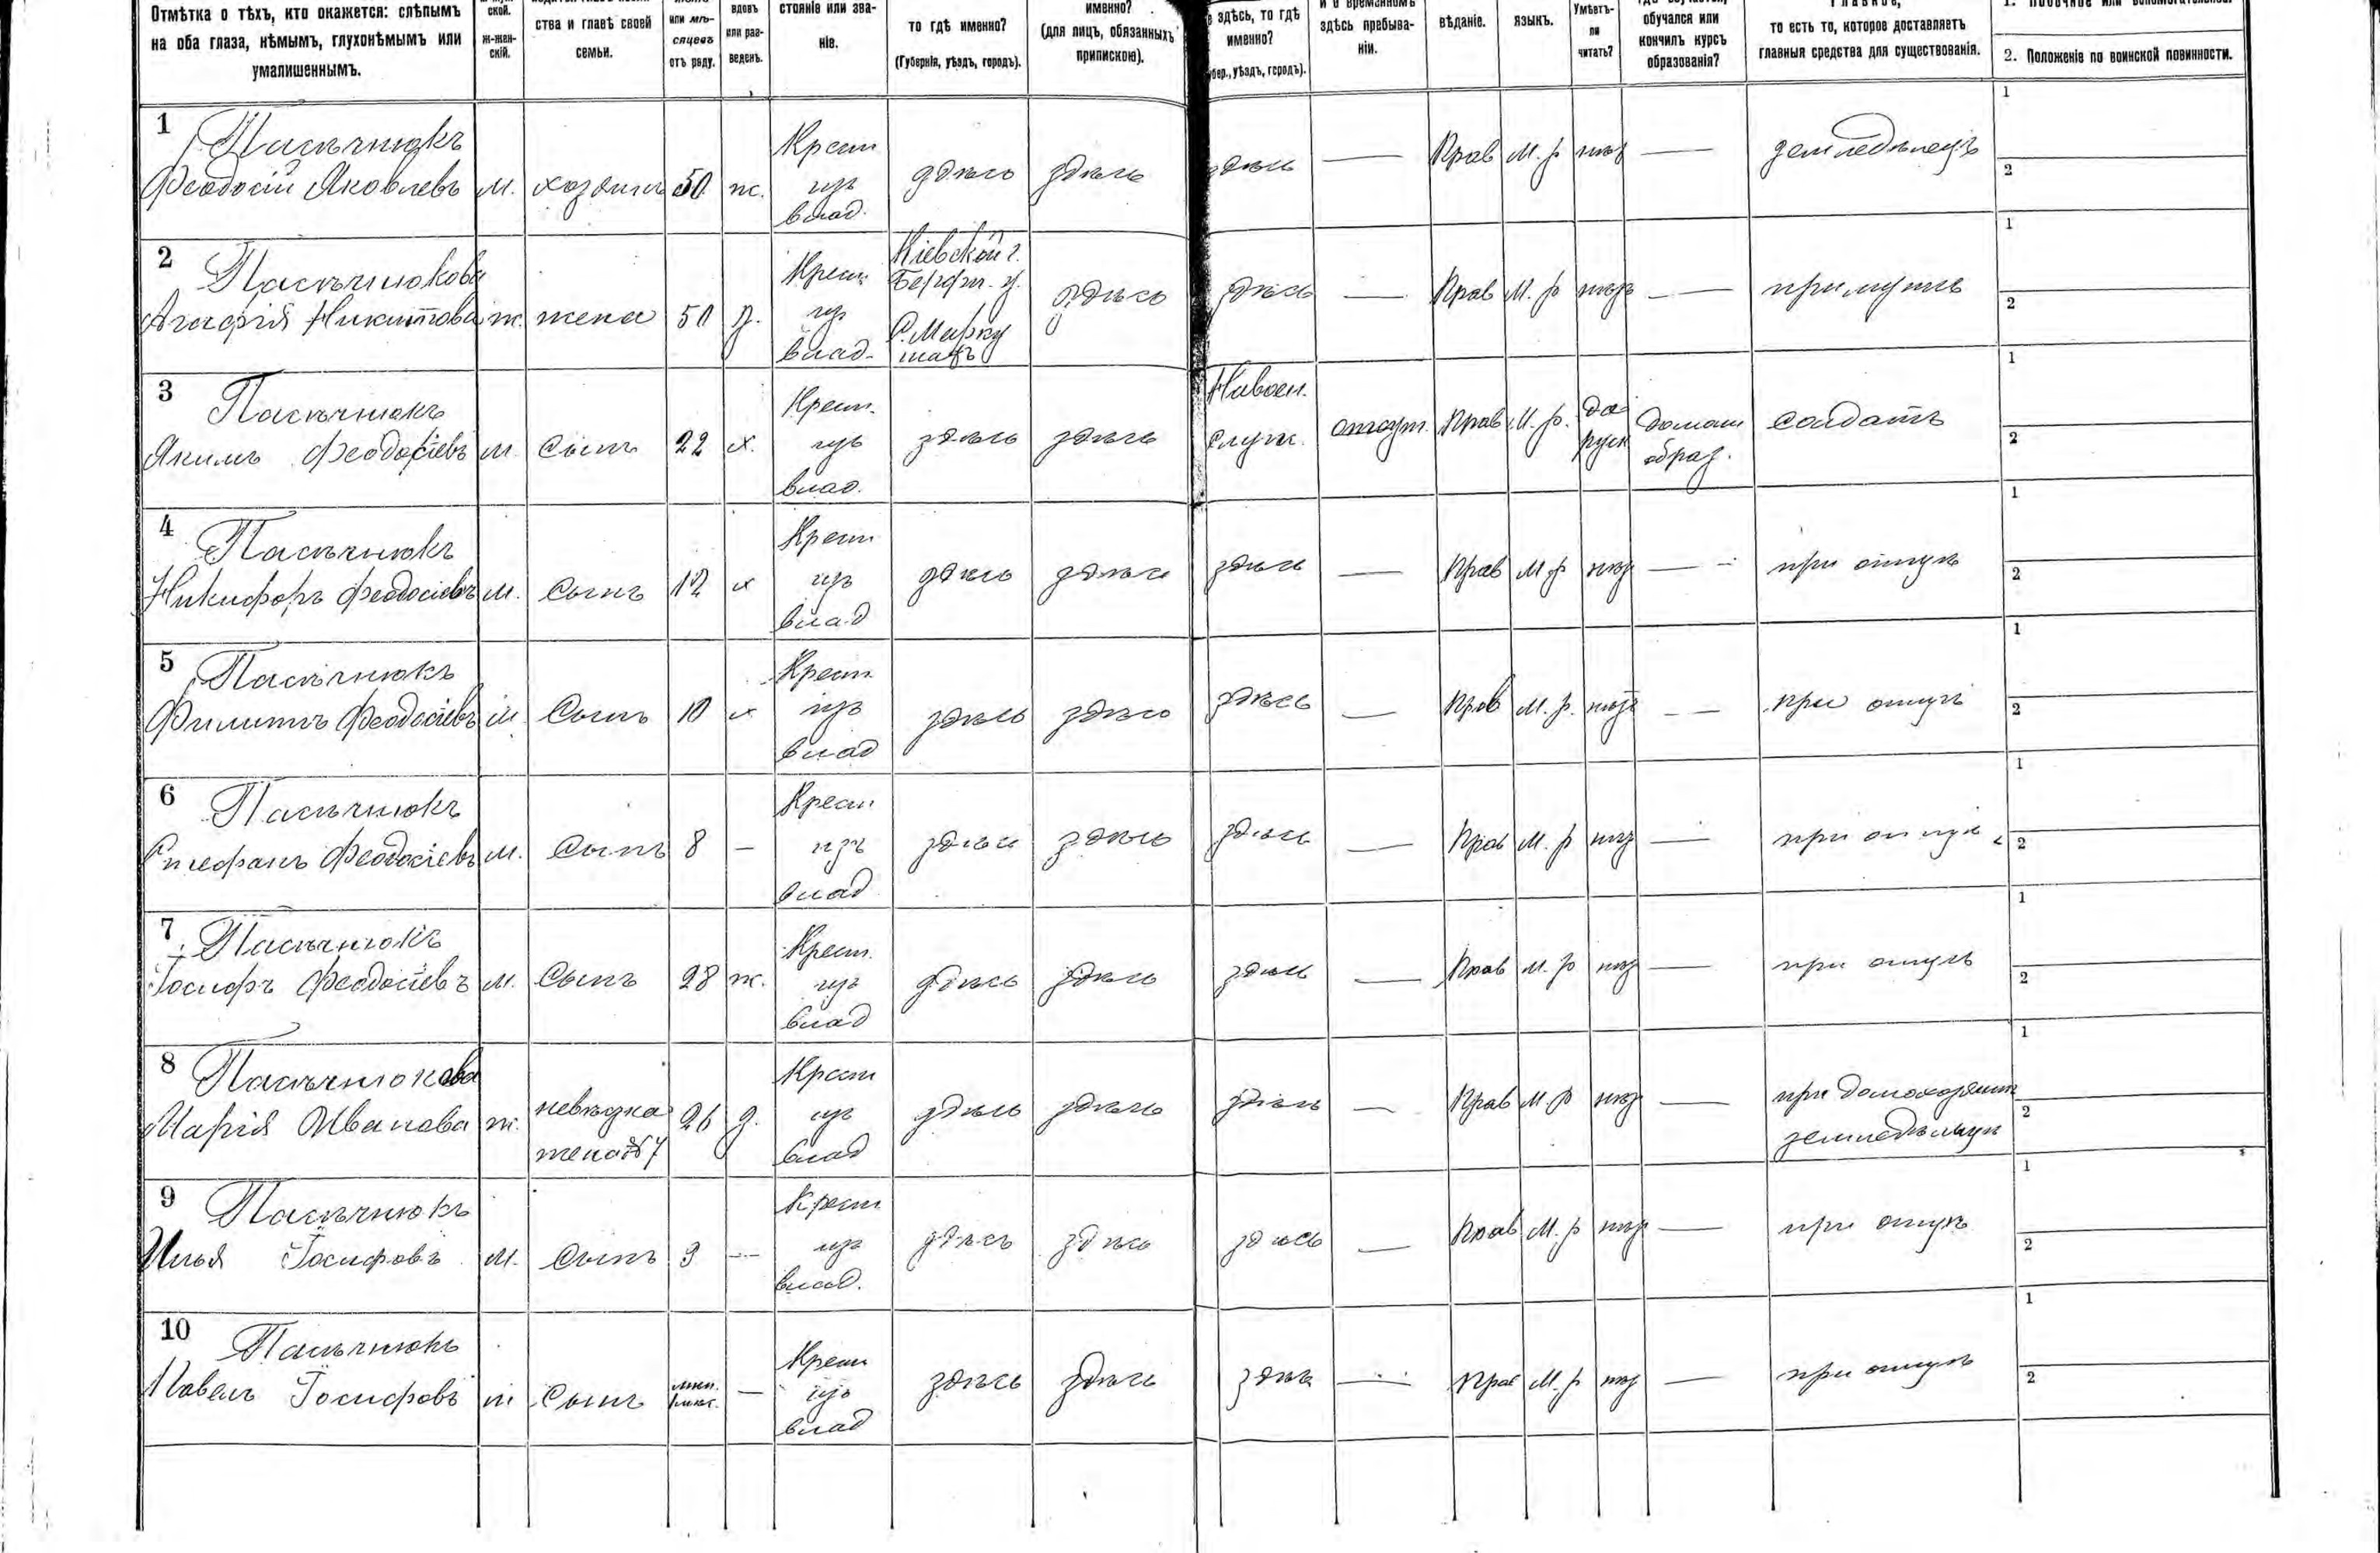 Отмѣтка о тѣхъ, кто окажется: слѣпымъ
на оба глаза, нѣмымъ, глухонѣмымъ или
умалишеннымъ.
ской.
ж-жен-
скій.
ства и главѣ своей
семьи.
или мѣ-
сяцевъ
отъ роду.
вдовъ
или раз-
веденъ.
стояніе или зва-
ніе.
то гдѣ именно?
(Губернія, уѣздъ, городъ).
именно?
(для лицъ, обязанныхъ
припискою).
здѣсь, то гдѣ
именно?
бер., уѣздъ, городъ).
и о временномъ
здѣсь пребыва-
ніи.
вѣданіе.
языкъ.
Умѣетъ-
ли
читать?
обучался или
кончилъ курсъ
образованія?
то есть то, которое доставляетъ
главныя средства для существованія.
2. Положеніе по воинской повинности.
1 Пасѣчнюкъ
Феодосій Яковлевъ м. хозяинъ 50 ж. Крест изъ влад. здѣсь здѣсь здѣсь — Прав М. р нѣт — земледѣлецъ 1 2
2 Пасѣчнюкова
Агафія Никитова ж. жена 50 з. Крест изъ влад. Кіевской г. здѣсь здѣсь — Прав М. р нѣтъ — при мужѣ 1 2
3 Пасѣчнюкъ
Якимъ Феодосіевъ м. Сынъ 22 х. Крест. изъ влад. здѣсь здѣсь На воен. служ. отсут. Прав М. р. да руск домаш образ. солдатъ 1 2
4 Пасѣчнюкъ
Никифоръ Феодосіевъ м. Сынъ 12 х Крест изъ влад здѣсь здѣсь здѣсь — Прав М р нѣт — при отцѣ 1 2
5 Пасѣчнюкъ
Филиппъ Феодосіевъ м Сынъ 10 х Крест изъ влад здѣсь здѣсь здѣсь — Прав М. р. нѣтъ — при отцѣ 1 2
6 Пасѣчнюкъ
Стефанъ Феодосіевъ м. Сынъ 8 — Крест изъ влад здѣсь здѣсь здѣсь — Прав М. р нѣт — при отцѣ 1 2
7 Пасѣчнюкъ
Іосифъ Феодосіевъ м. Сынъ 28 ж. Крест. изъ влад здѣсь здѣсь здѣсь — Прав М. р нѣт — при отцѣ 1 2
8 Пасѣчнюкова
Марія Иванова ж. невѣстка жена №7 26 з. Крест изъ влад здѣсь здѣсь здѣсь — Прав М р нѣт — при 1 2
9 Пасѣчнюкъ
Илья Іосифовъ м. Сынъ 3 — Крест изъ влад. здѣсь здѣсь здѣсь — Прав М. р нѣт — при отцѣ 1 2
10 Пасѣчнюкъ
Павелъ Іосифовъ м Сынъ — Крест изъ влад здѣсь здѣсь здѣсь — Прав М. р нѣт — при отцѣ 1 2